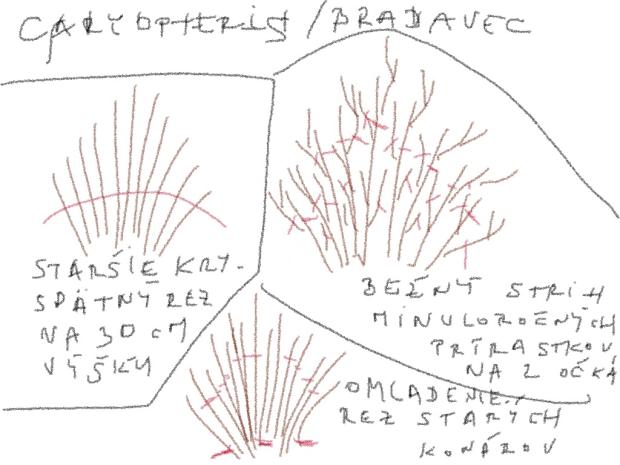 CARYOPTERIS / BRADAVEC
STARŠIE KRY-
SPÄTNÝ REZ
NA 30 CM
VÝŠKU
BEŽNÝ STRIH
MINULOROČNÝCH
PRÍRASTKOV
NA 2 OČKÁ
OMLADENIE /
REZ STARÝCH
KONÁROV